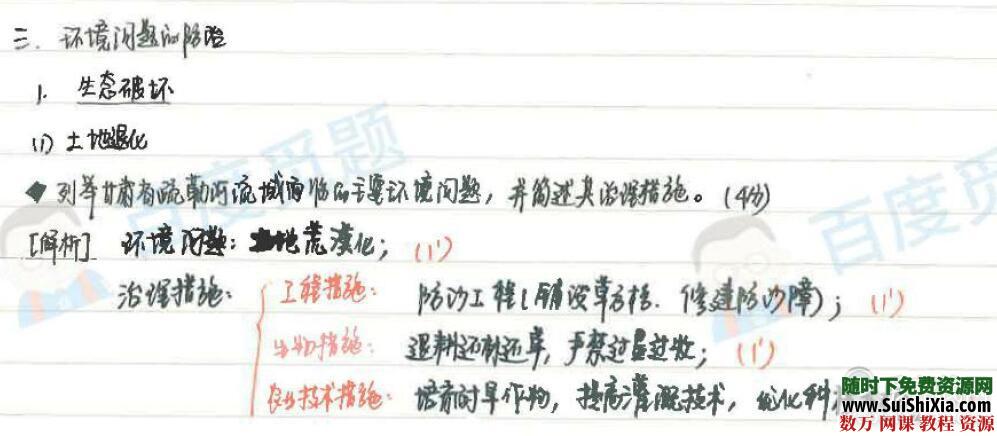 三. 环境问题的防治
1. 生态破坏
(1) 土地退化
◆ 列举甘肃省疏勒河流域面临的主要环境问题，并简述其治理措施。(4分)
[解析] 环境问题：土地荒漠化；(1')
治理措施：
工程措施：防沙工程(铺设草方格、修建防沙障)；(1')
生物措施：退耕还林还草，严禁过量过牧；(1')
农业技术措施：培育耐旱作物，提高灌溉技术，优化种
百度觅题
百度觅题
随时下免费资源网
www.SuiShiXia.com
数万 网课 教程 资源